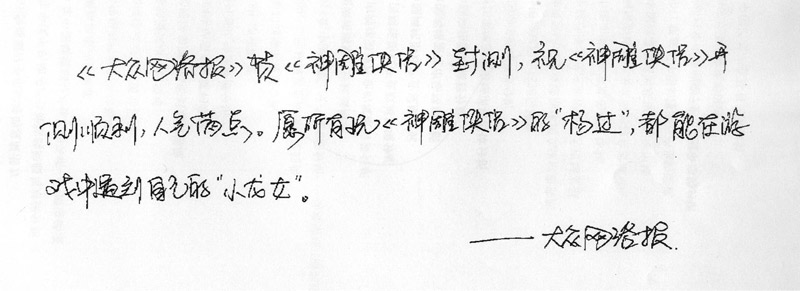 《大众网络报》贺《神雕侠侣》封测，祝《神雕侠侣》开
测顺利，人气满点。愿所有玩《神雕侠侣》的“杨过”，都能在游
戏中遇到自己的“小龙女”。
——大众网络报.